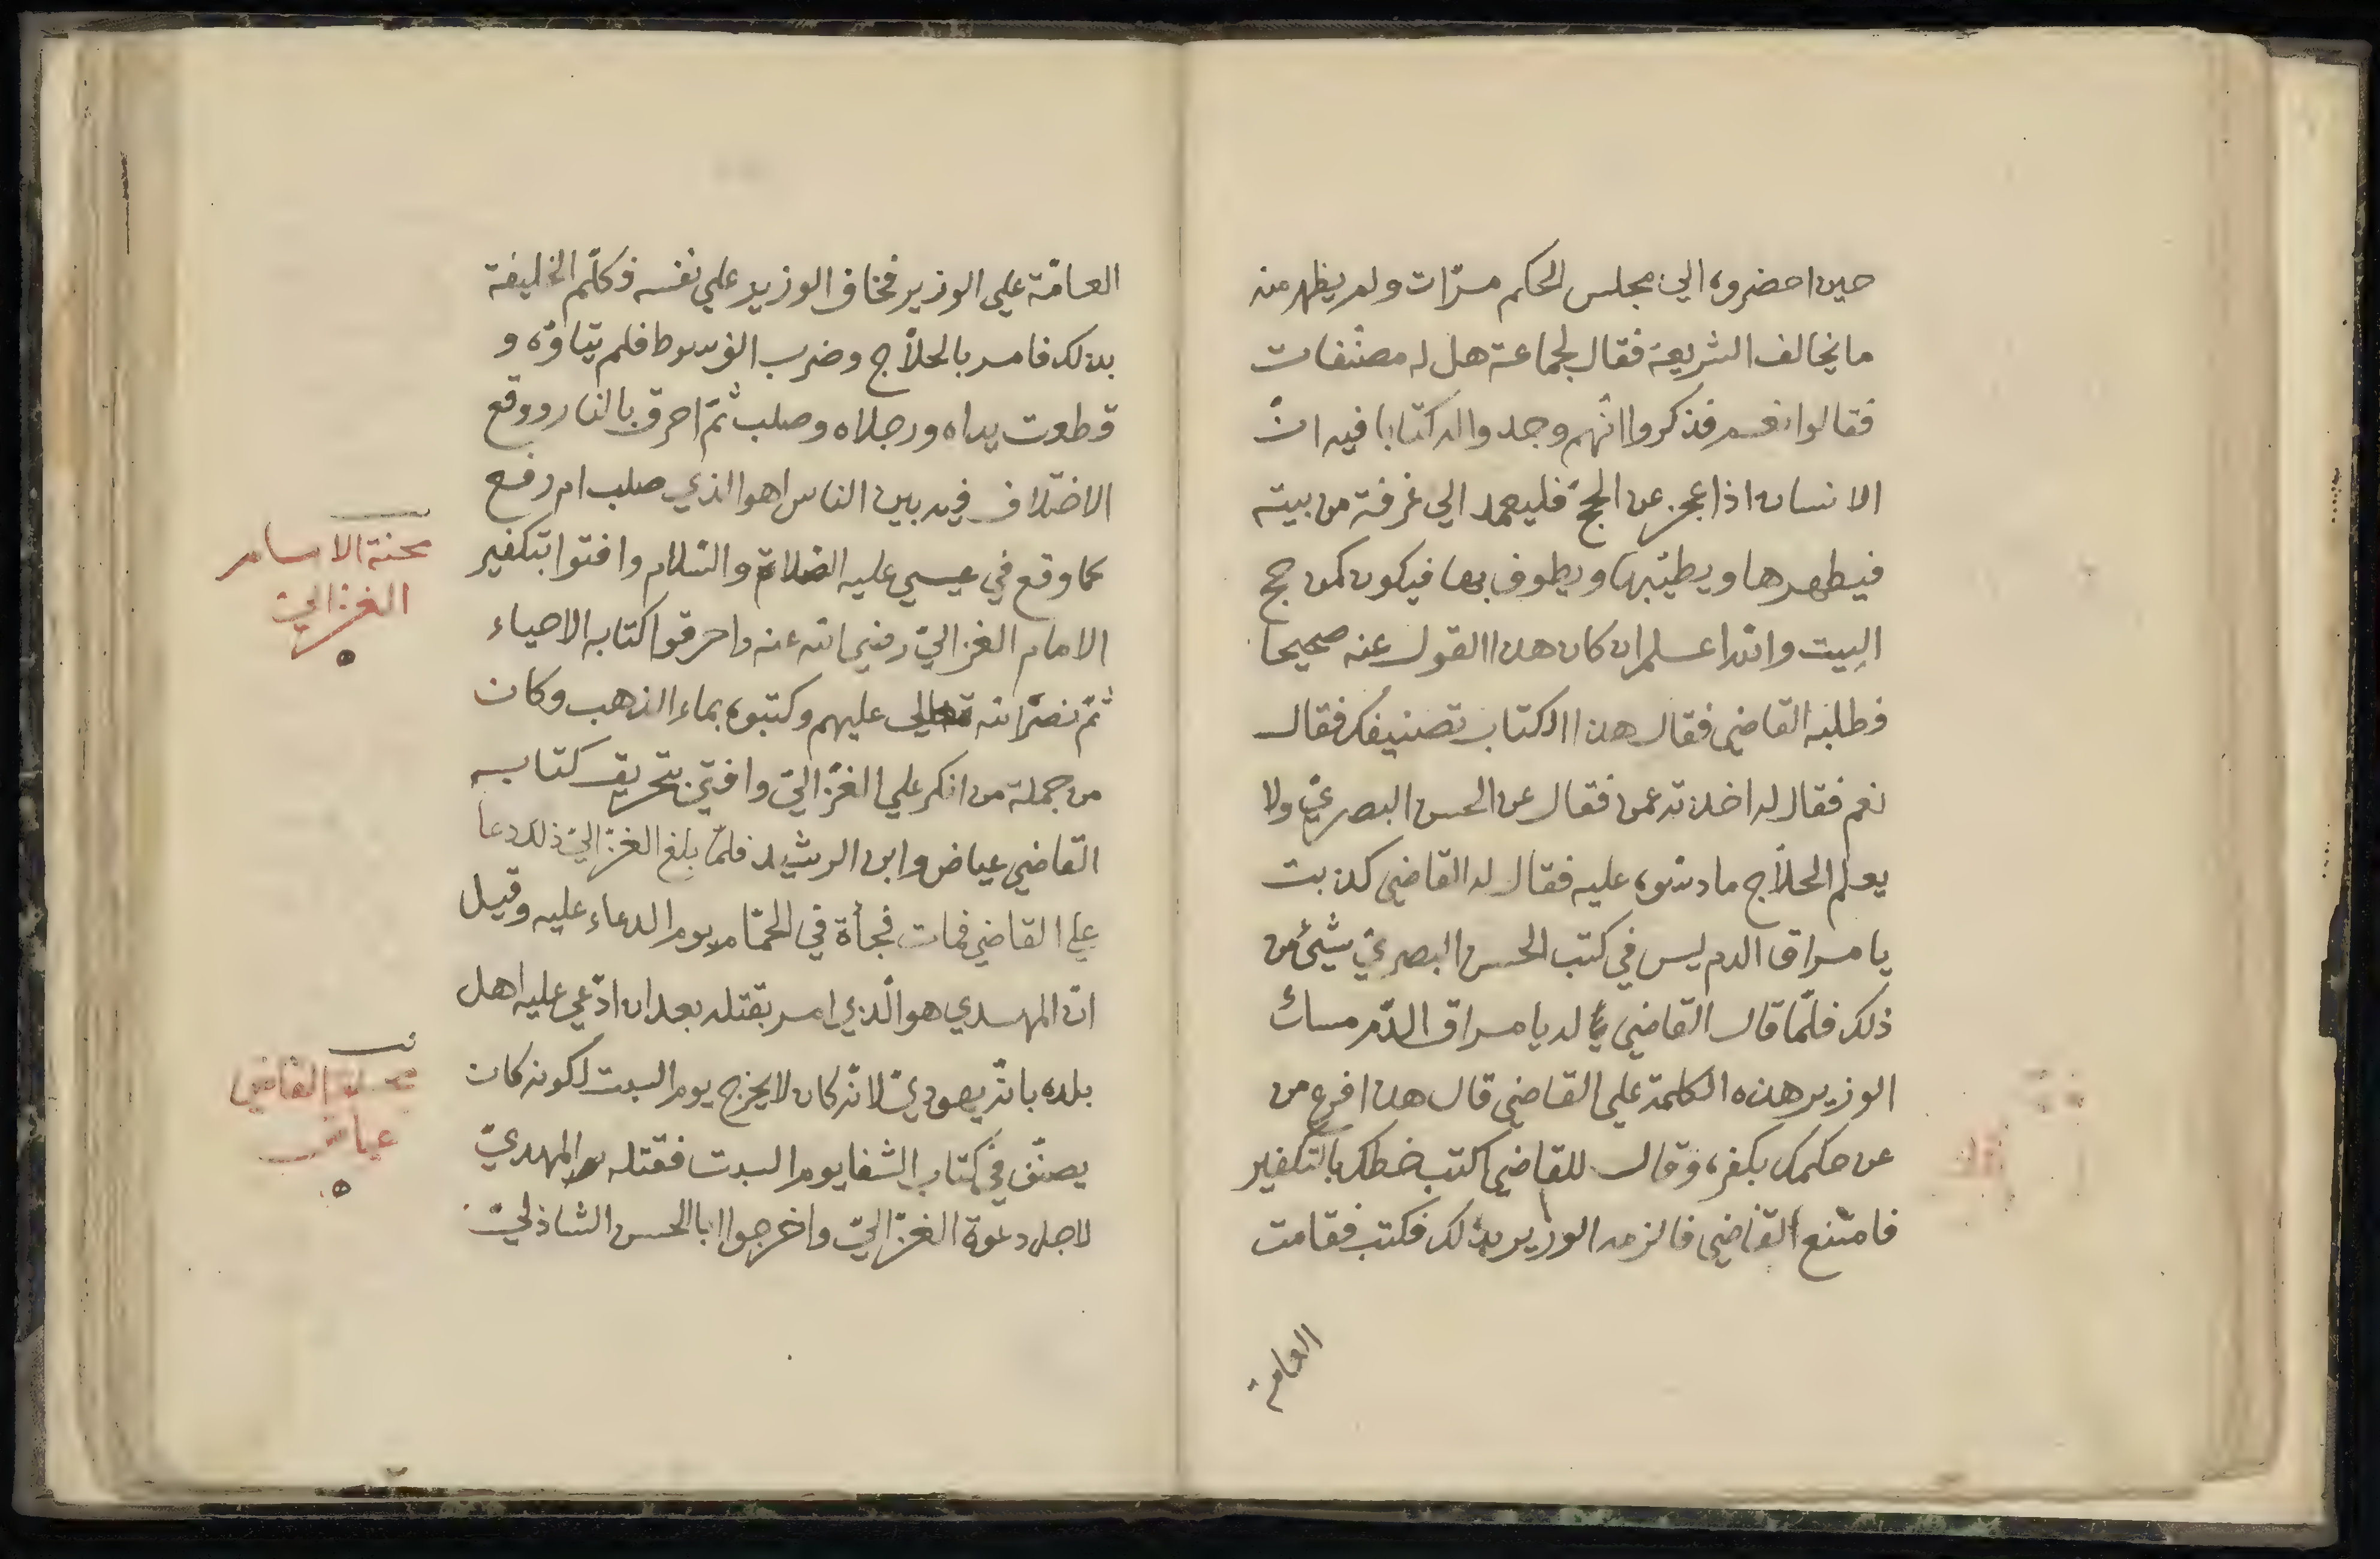 حين احضروه الي مجلس الحكم مرّات ولم يظهر منه
ما يخالف الشريعة فقال لجماعة هل له مصنّفات
فقالوا نعم فذكروا انّهم وجدوا له كتابا فيه انّ
الانسان اذا عجز عن الحجّ فليعمد الي غرفة من بيته
فيطهرها ويطيّبها ويطوف بها فيكون كمن حج
البيت والله اعلم ان كان هذا القول عنه صحيحا
فطلبه القاضي فقال هذا الكتاب تصنيفك فقال
نعم فقال له اخذته عمن فقال عن الحسن البصريّ ولا
يعلم الحلّاج ما دسّوه عليه فقال له القاضي كذبت
يا مراق الدم ليس في كتب الحسن البصريّ شيئ من
ذلك فلمّا قال القاضي له يا مراق الدّم مسك
الوزير هذه الكلمة علي القاضي قال هذا فرع من
عن حكمك بكفره وقال للقاضي اكتب خطك بالتكفير
فامتنع القاضي فالزمه الوزير بذلك فكتب فقامت
العامة
العامّة علي الوزير فخاف الوزير علي نفسه فكلّم الخليفة
بذلك فامر بالحلّاج وضرب الف سوط فلم يتاوّه و
قطعت يداه ورجلاه وصلب ثمّ احرق بالنار ووقع
الاختلاف فيه بين الناس اهو الذي صلب ام رفع
كما وقع في عيسي عليه الصلاة والسّلام وافتوا بتكفير
الامام الغزاليّ رضي الله عنه واحرقوا كتابه الاحياء
ثمّ نصره الله تعالي عليهم وكتبوه بماء الذهب وكان
من جملة من انكر علي الغزّاليّ وافتي بتحريق كتابه
القاضي عياض وابن الرشيد فلمّا بلغ الغزّاليّ ذلك دعا
علي القاضي فمات فجأة في الحمّام يوم الدعاء عليه وقيل
انّ المهدي هو الّذي امر بقتله بعد ان ادّعي عليه اهل
بلده بانّه يهوديّ لانّه كان لا يخرج يوم السبت لكونه كان
يصنّف في كتاب الشفا يوم السبت فقتله المهديّ
لاجل دعوة الغزّاليّ واخرجوا ابا الحسن الشاذليّ
محنة الامام
الغزاليّ
القاضي
عياض